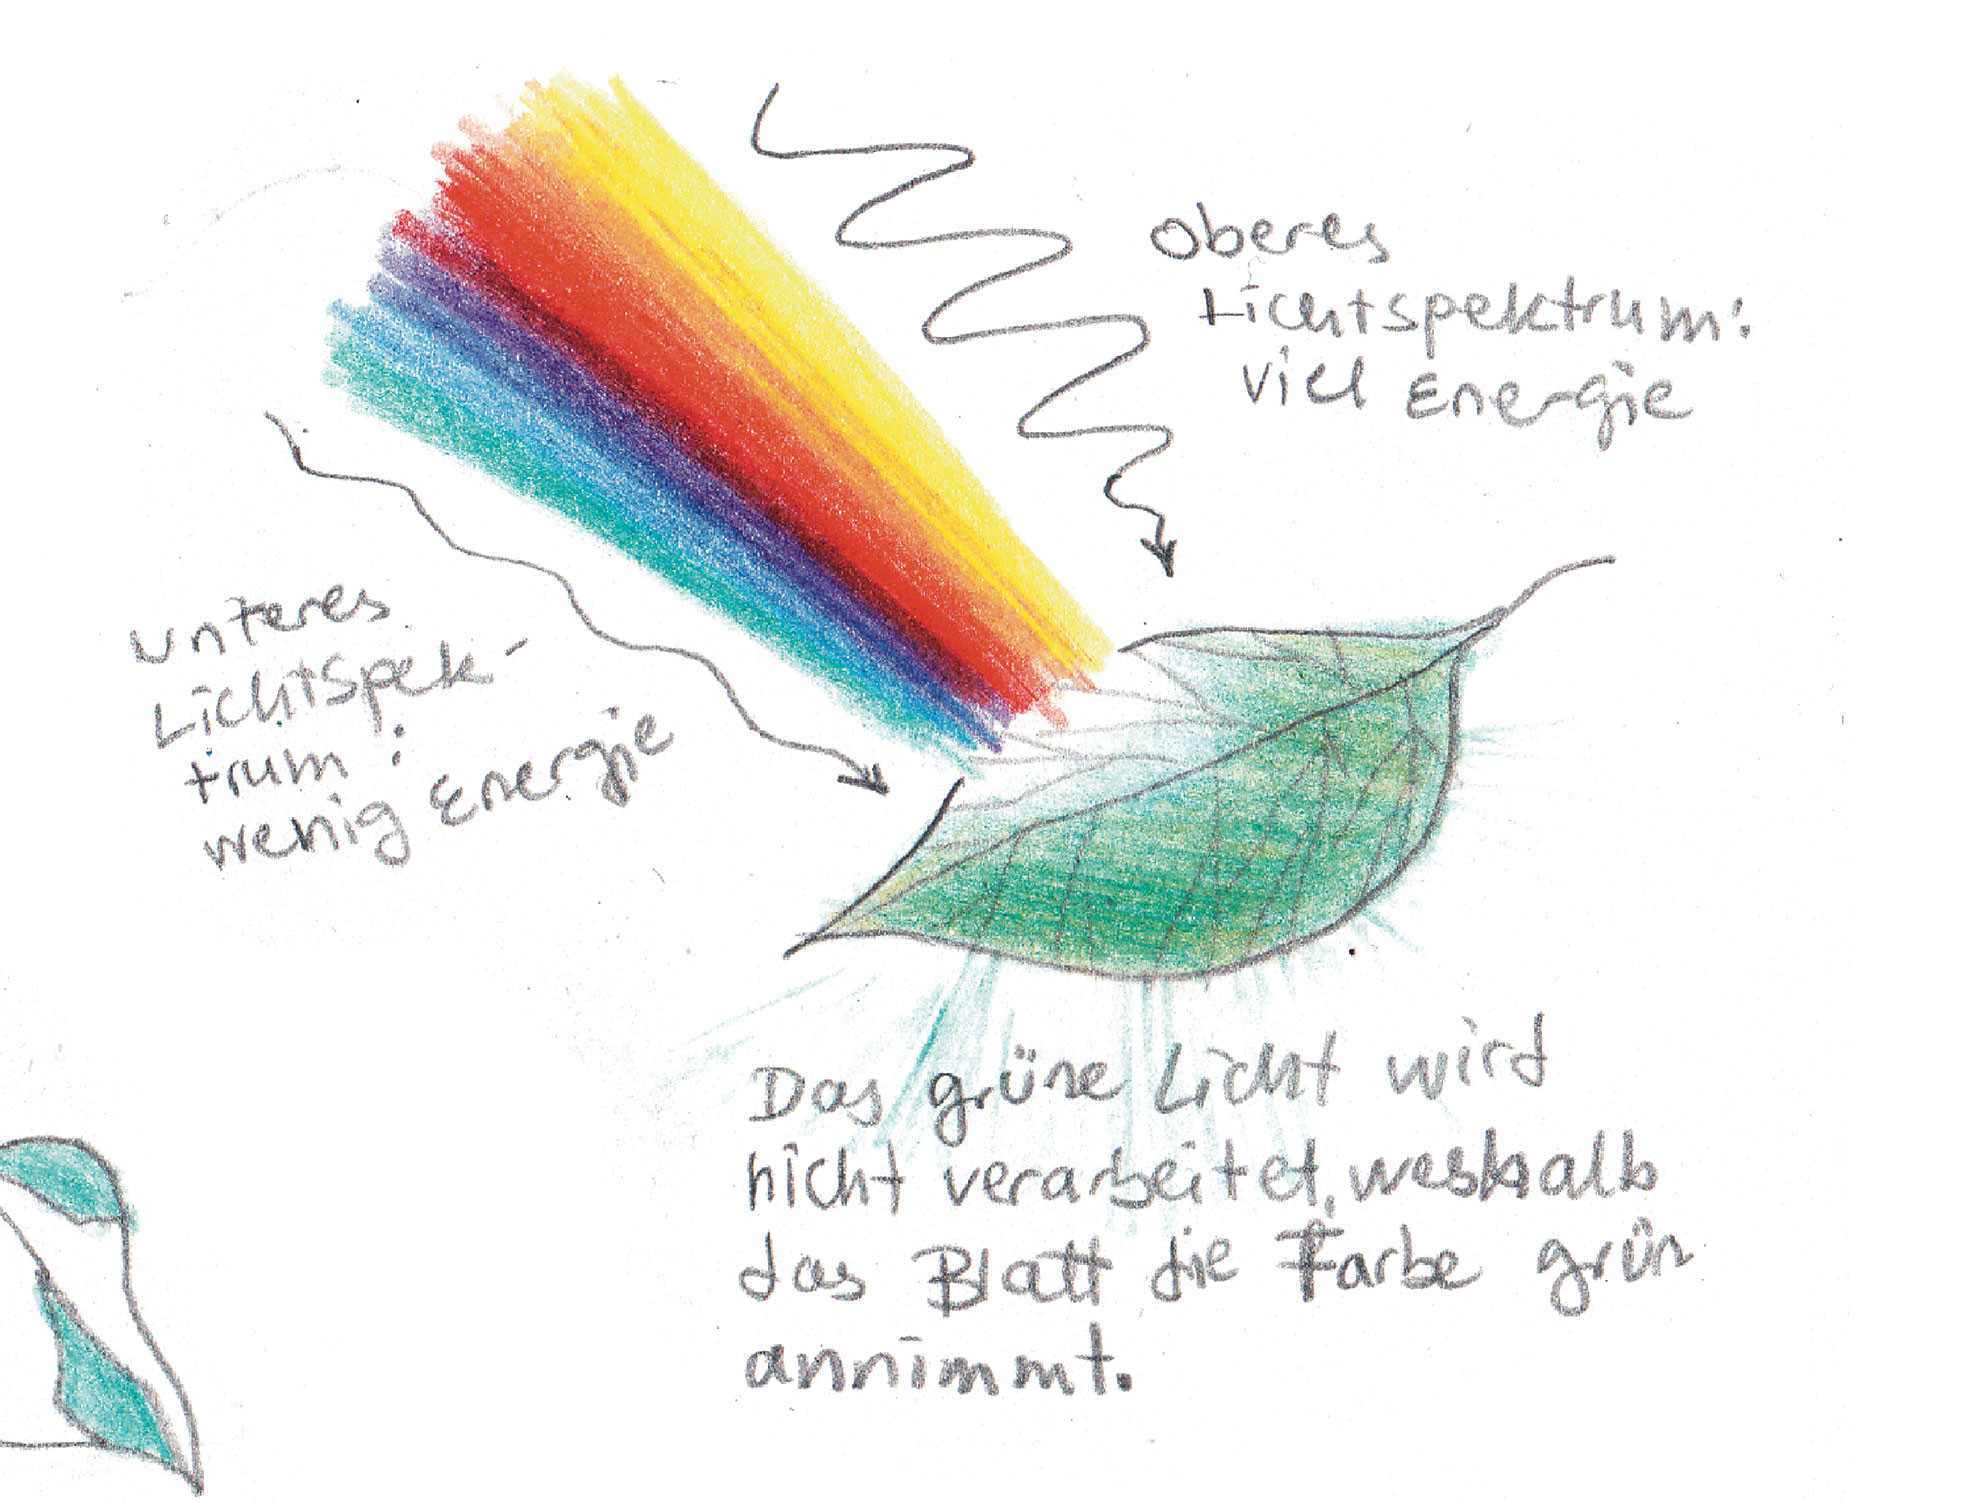 Oberes
Lichtspektrum:
Viel Energie
Unteres
Lichtspek-
trum:
wenig Energie
Das grüne Licht wird
nicht verarbeitet, weshalb
das Blatt die Farbe grün
annimmt.